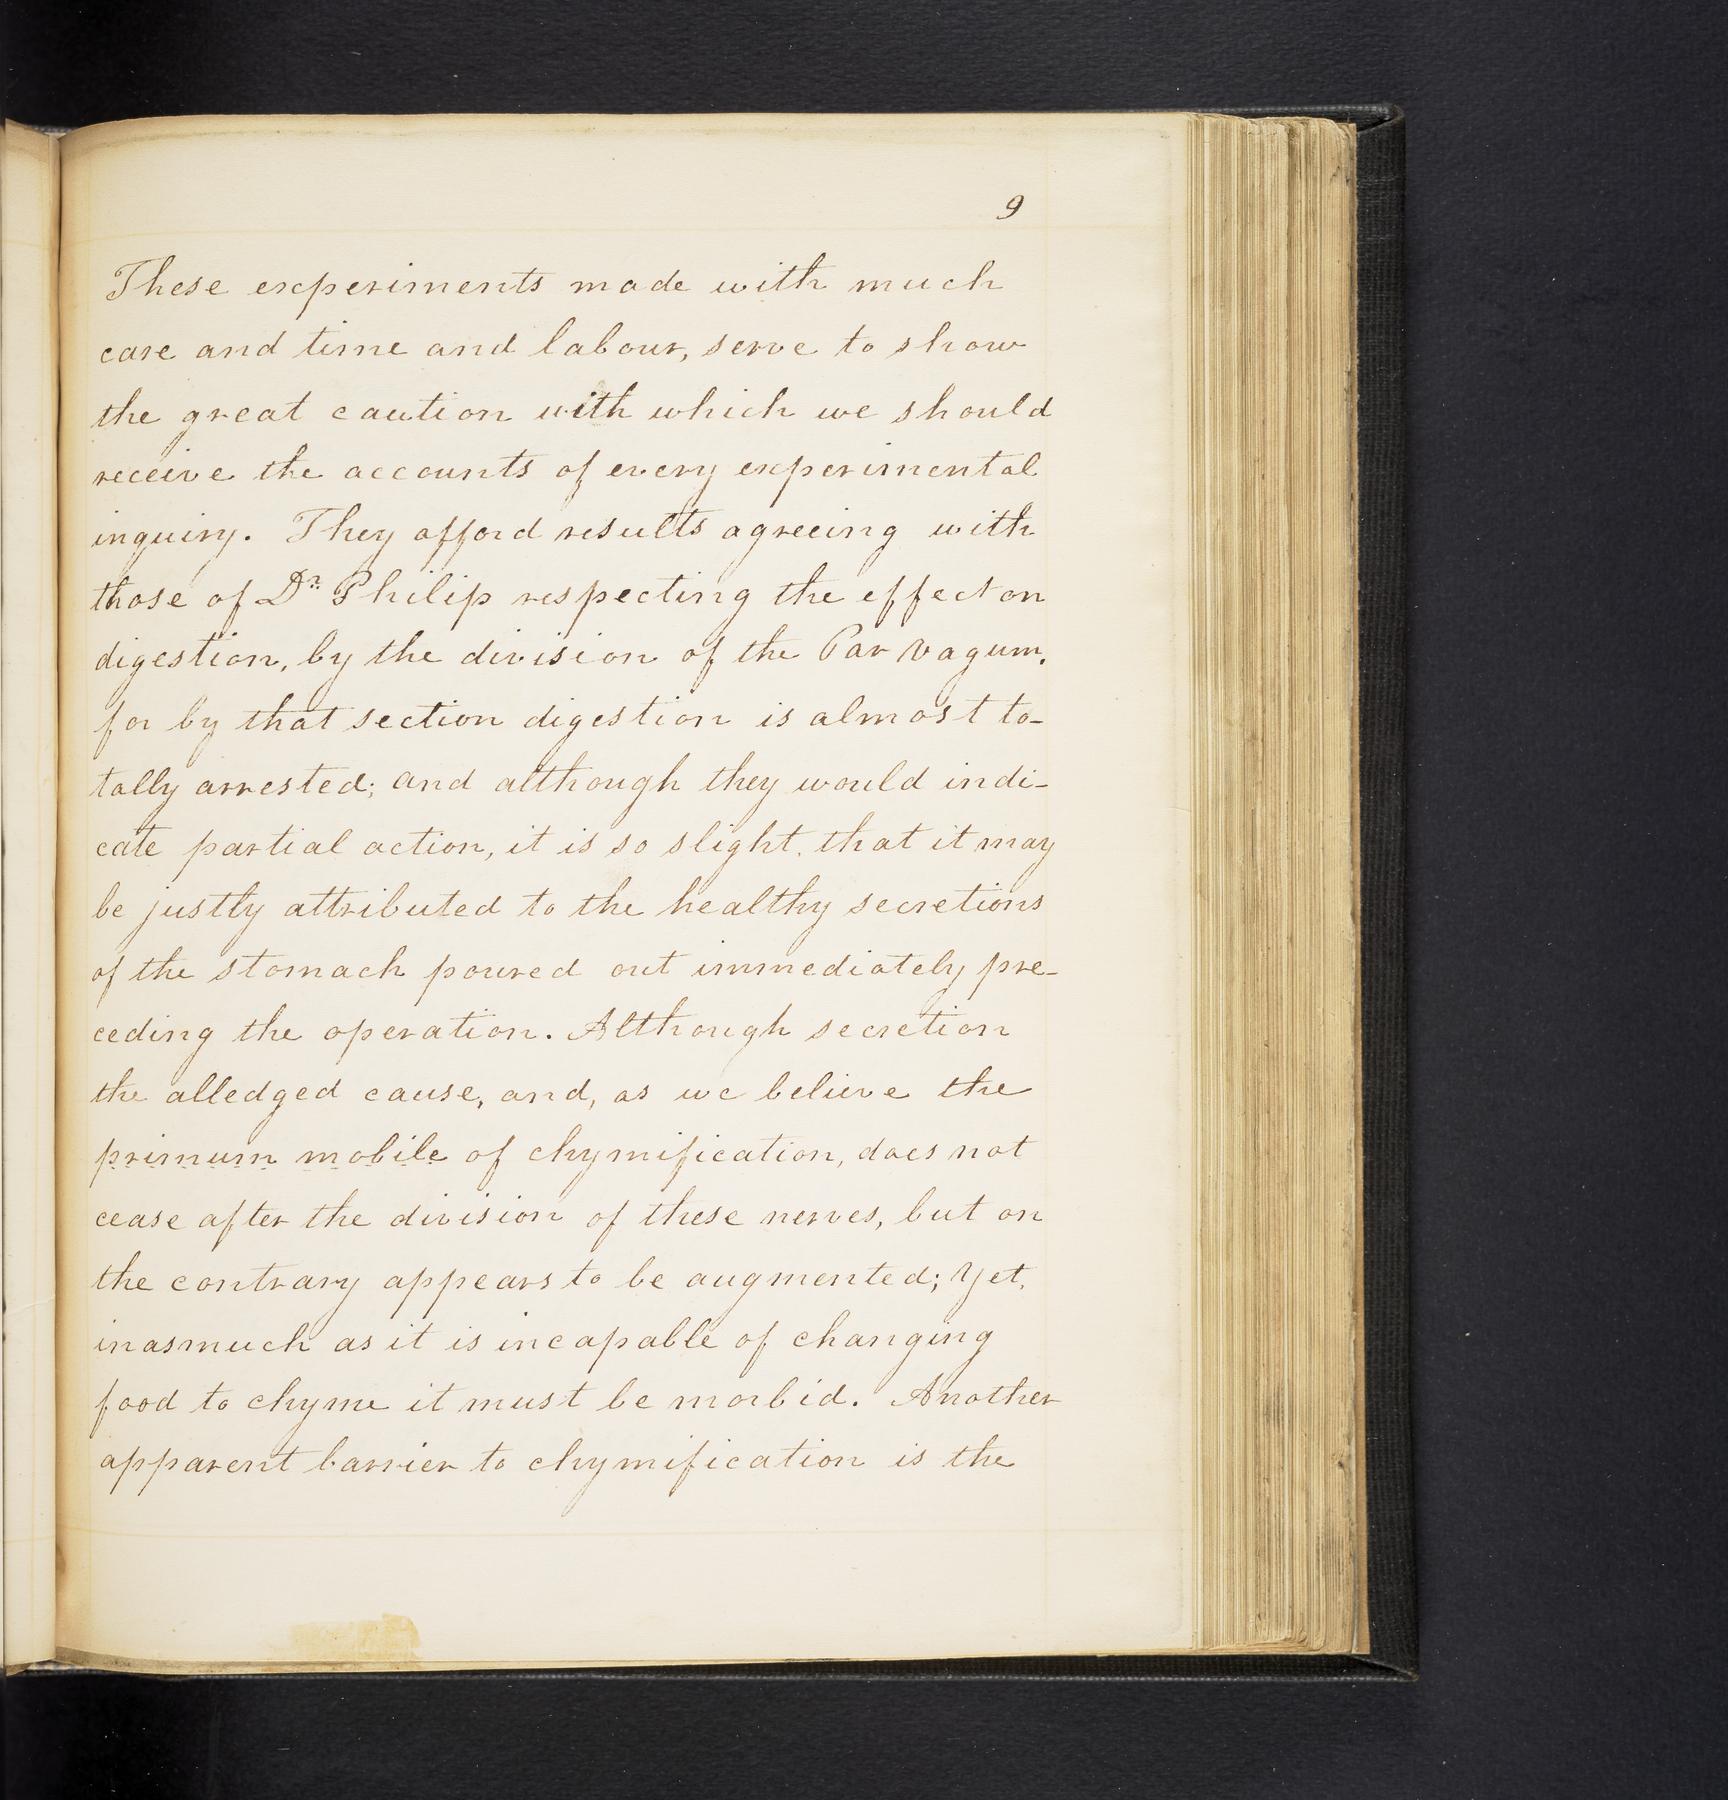 9
These experiments made with much
care and time and labour, serve to show
the great caution with which we should
receive the accounts of every experimental
inquiry. They afford results agreeing with
those of Dr. Philip respecting the effect on
digestion, by the division of the Par Vagum.
for by that section digestion is almost to-
tally arrested; and although they would indi-
cate partial action, it is so slight, that it may
be justly attributed to the healthy secretions
of the stomach poured out immediately pre-
ceding the operation. Although secretion
the alledged cause, and, as we believe the
primum mobile of chymification, does not
cease after the division of these nerves, but on
the contrary appears to be augmented; Yet,
inasmuch as it is incapable of changing
food to chyme it must be morbid. Another
apparent barrier to chymification is the